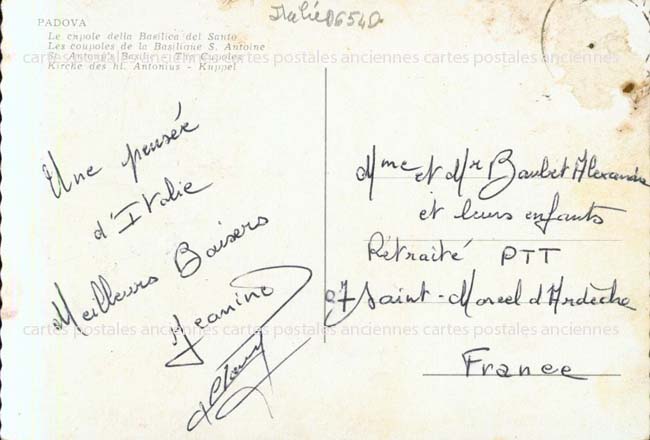 PADOVA
Le cupole della Basilica del Santo
Les coupoles de la Basilique S. Antoine
St. Antony's Basilic - The Cupolas
Kirche des hl. Antonius - Kuppel
Italie 06540
cartes postales anciennes cartes postales anciennes cartes postales anciennes
Une pensée
d'Italie
Meilleurs Baisers
Jeanino
Mme et Mr Baubet Alexandre
et leurs enfants
Rétraité PTT
07 Saint-Marcel d'Ardèche
France
cartes postales anciennes cartes postales anciennes cartes postales anciennes